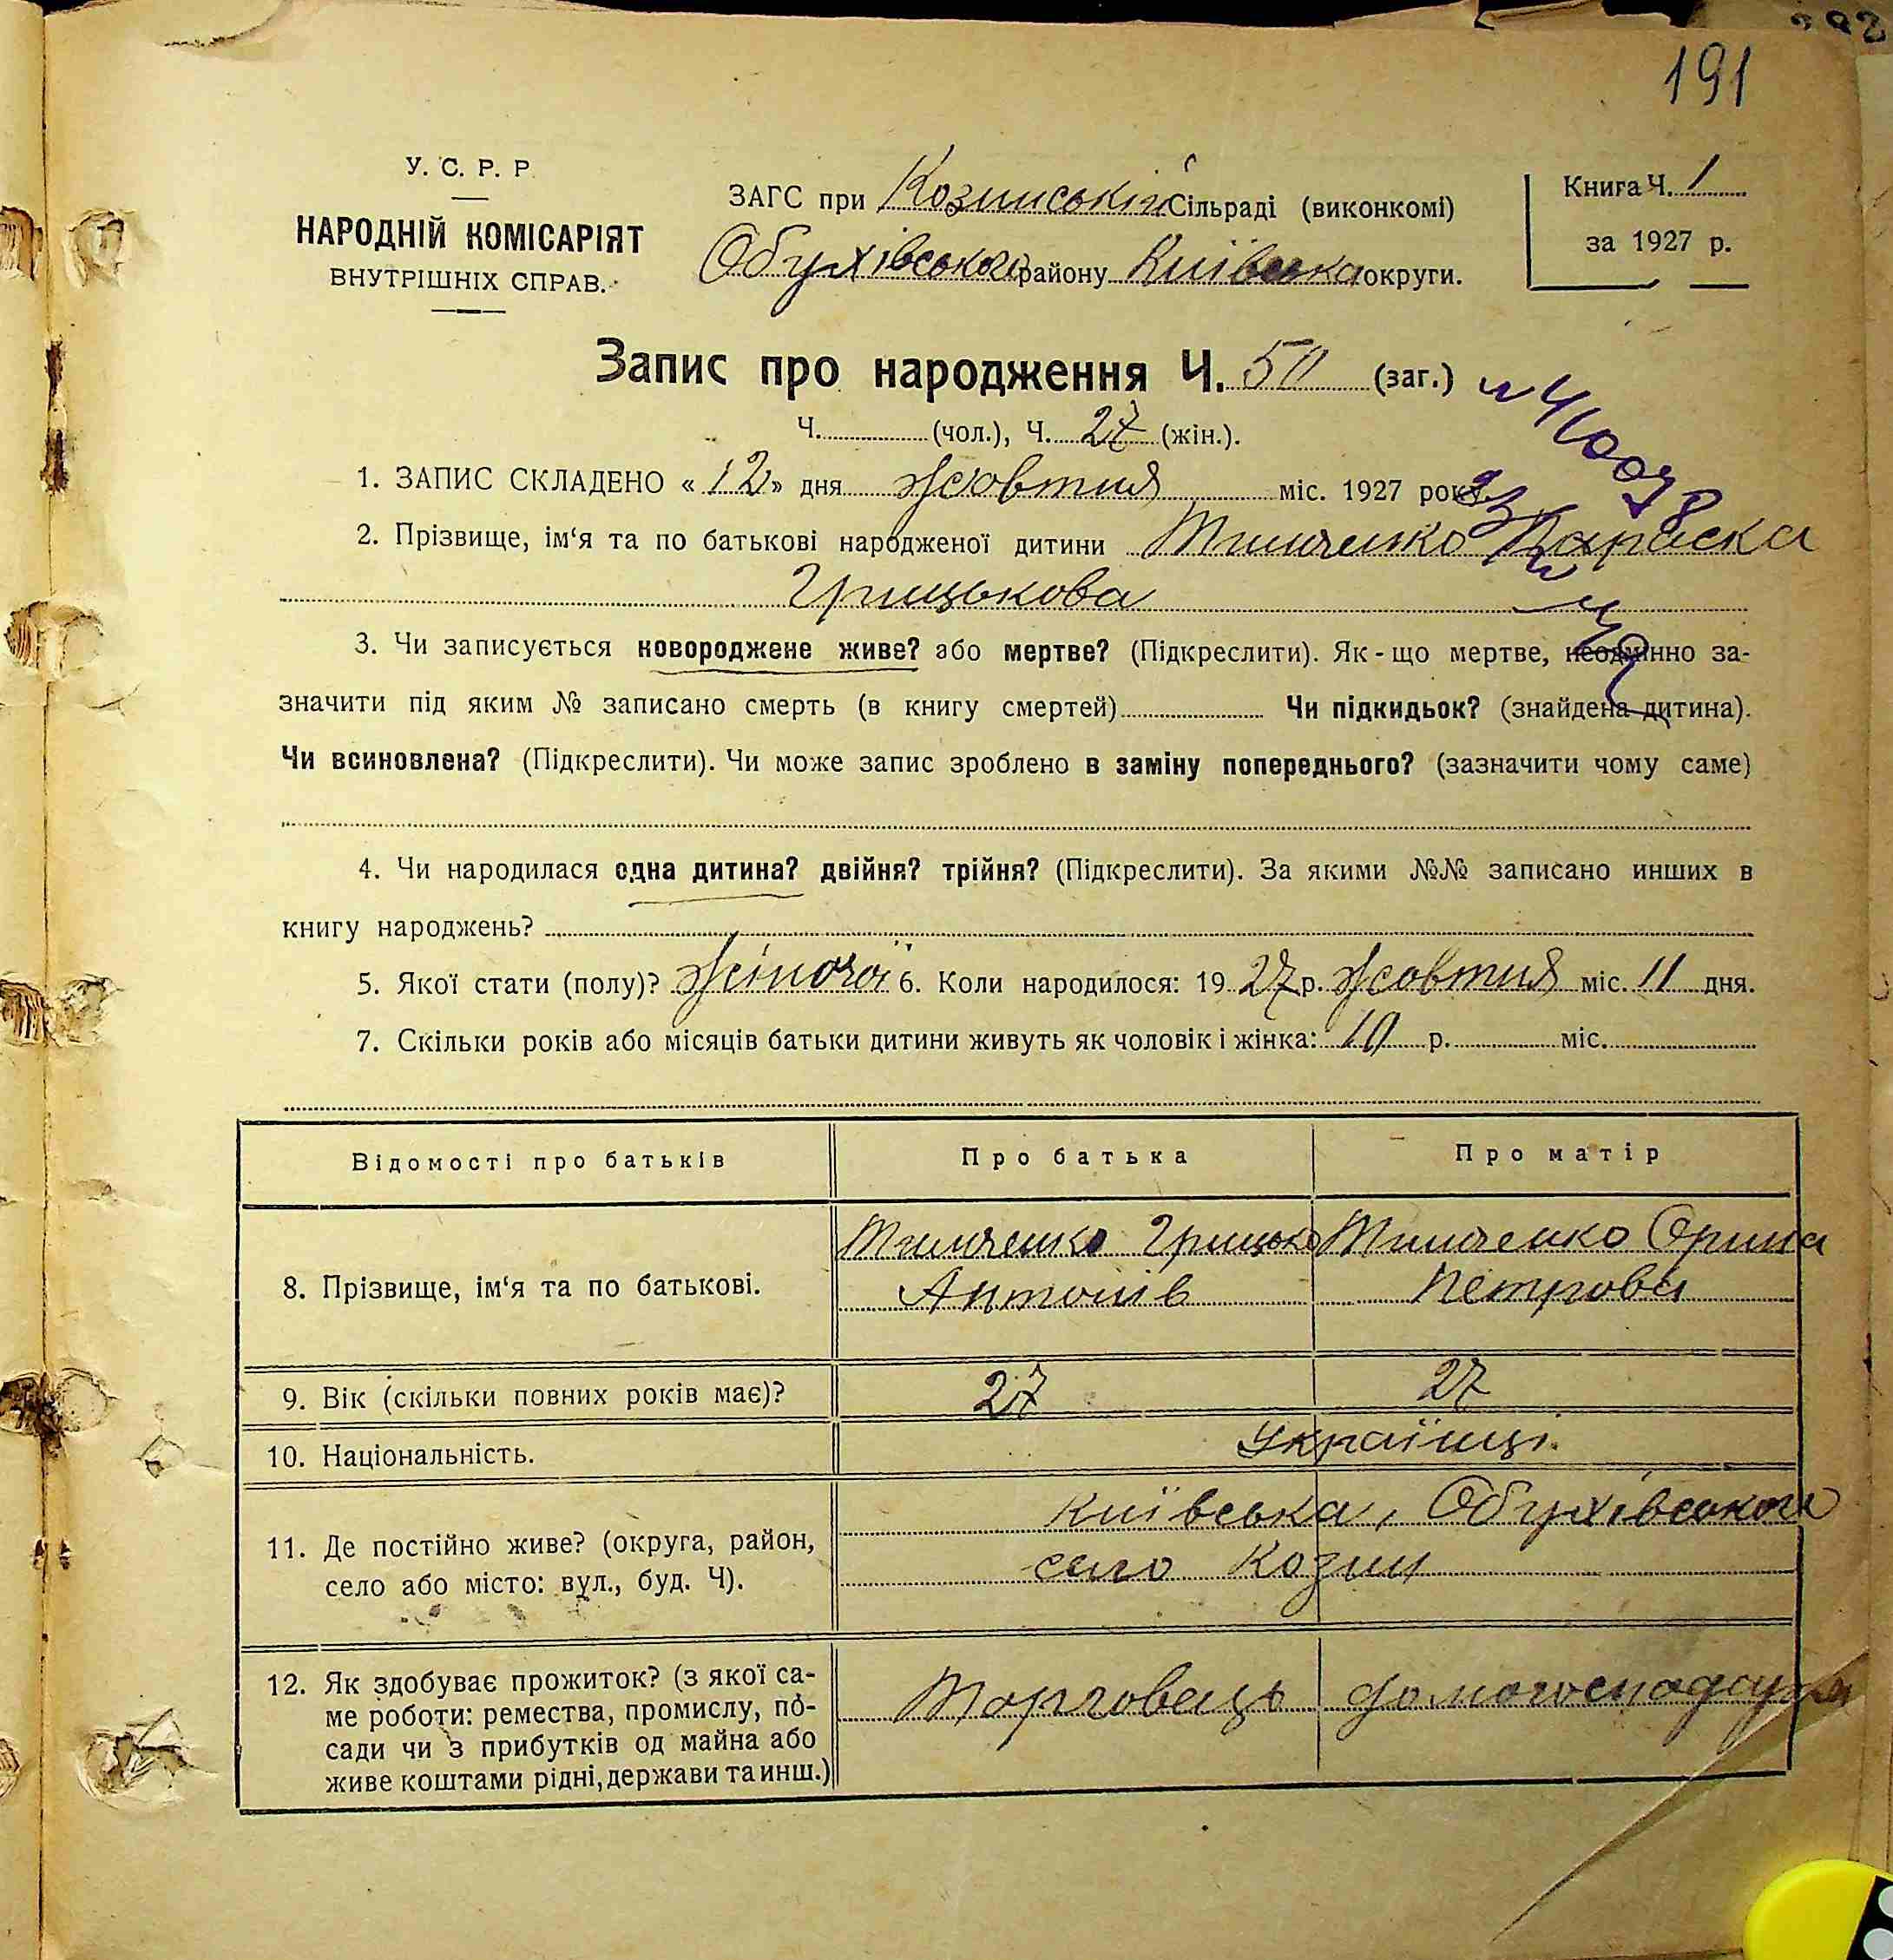 191
У. С. Р. Р.
НАРОДНІЙ КОМІСАРІЯТ
ВНУТРІШНІХ СПРАВ.
ЗАГС при Козинській Сільраді (виконкомі)
Обухівського району Київська округи.
Книга Ч. 1
за 1927 р.
Запис про народження Ч. 50 (заг.)
Ч. (чол.), Ч. 27 (жін.).
1. ЗАПИС СКЛАДЕНО « 12 » дня жовтня міс. 1927 року
2. Прізвище, ім‘я та по батькові народженої дитини Тимченко Параска
Грицькова
3. Чи записується новороджене живе? або мертве? (Підкреслити). Як-що мертве, неодмінно за-
значити під яким № записано смерть (в книгу смертей) Чи підкидьок? (знайдена дитина).
Чи всиновлена? (Підкреслити). Чи може запис зроблено в заміну попереднього? (зазначити чому саме)
4. Чи народилася одна дитина? двійня? трійня? (Підкреслити). За якими №№ записано инших в
книгу народжень?
5. Якої стати (полу)? жіночої 6. Коли народилося: 19 27 р. жовтня міс. 11 дня.
7. Скільки років або місяців батьки дитини живуть як чоловік і жінка: 10 р. міс.
Відомості про батьків Про батька Про матір
8. Прізвище, ім‘я та по батькові.
Тимченко Грицько Тимченко Орина
Антонів Петрова
9. Вік (скільки повних років має)? 27 27
10. Національність. Українці.
11. Де постійно живе? (округа, район,
село або місто: вул., буд. Ч).
Київська, Обухівського
село Козин
12. Як здобуває прожиток? (з якої са-
ме роботи: ремества, промислу, по-
сади чи з прибутків од майна або
живе коштами рідні, держави та инш.)
Торговець домогосподарка